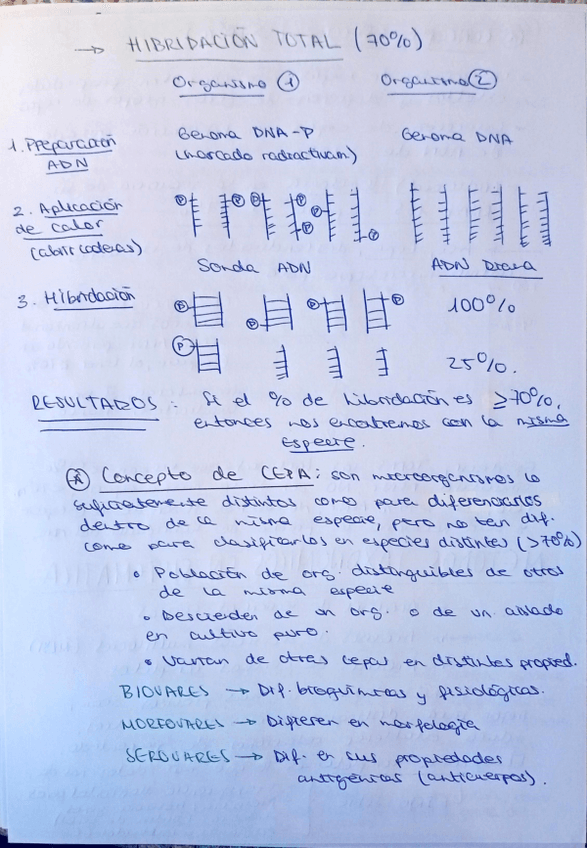 → HIBRIDACIÓN TOTAL (70%)
Organismo ① Organismo ②
1. Preparación ADN Genoma DNA-P (marcado radiactivam) Genoma DNA
2. Aplicación de calor (abrir cadenas)
P P P P P P
Sonda ADN ADN Diana
3. Hibridación P P P P 100%
P 25%.
RESULTADOS:- Si el % de hibridación es ≥70%,
entonces nos encontramos con la misma
especie.
Concepto de CEPA: son microorganismos lo
suficientemente distintos como para diferenciarlos
dentro de la misma especie, pero no tan dif.
como para clasificarlos en especies distintas (>70%)
• Población de org. distinguibles de otros
de la misma especie
• Descienden de un org. o de un aislado
en cultivo puro.
• Varían de otras cepas en distintas propied.
BIOVARES → Dif. bioquímicas y fisiológicas.
MORFOVARES → Difieren en morfología
SEROVARES → Dif. en sus propiedades
antigénicas (anticuerpos).